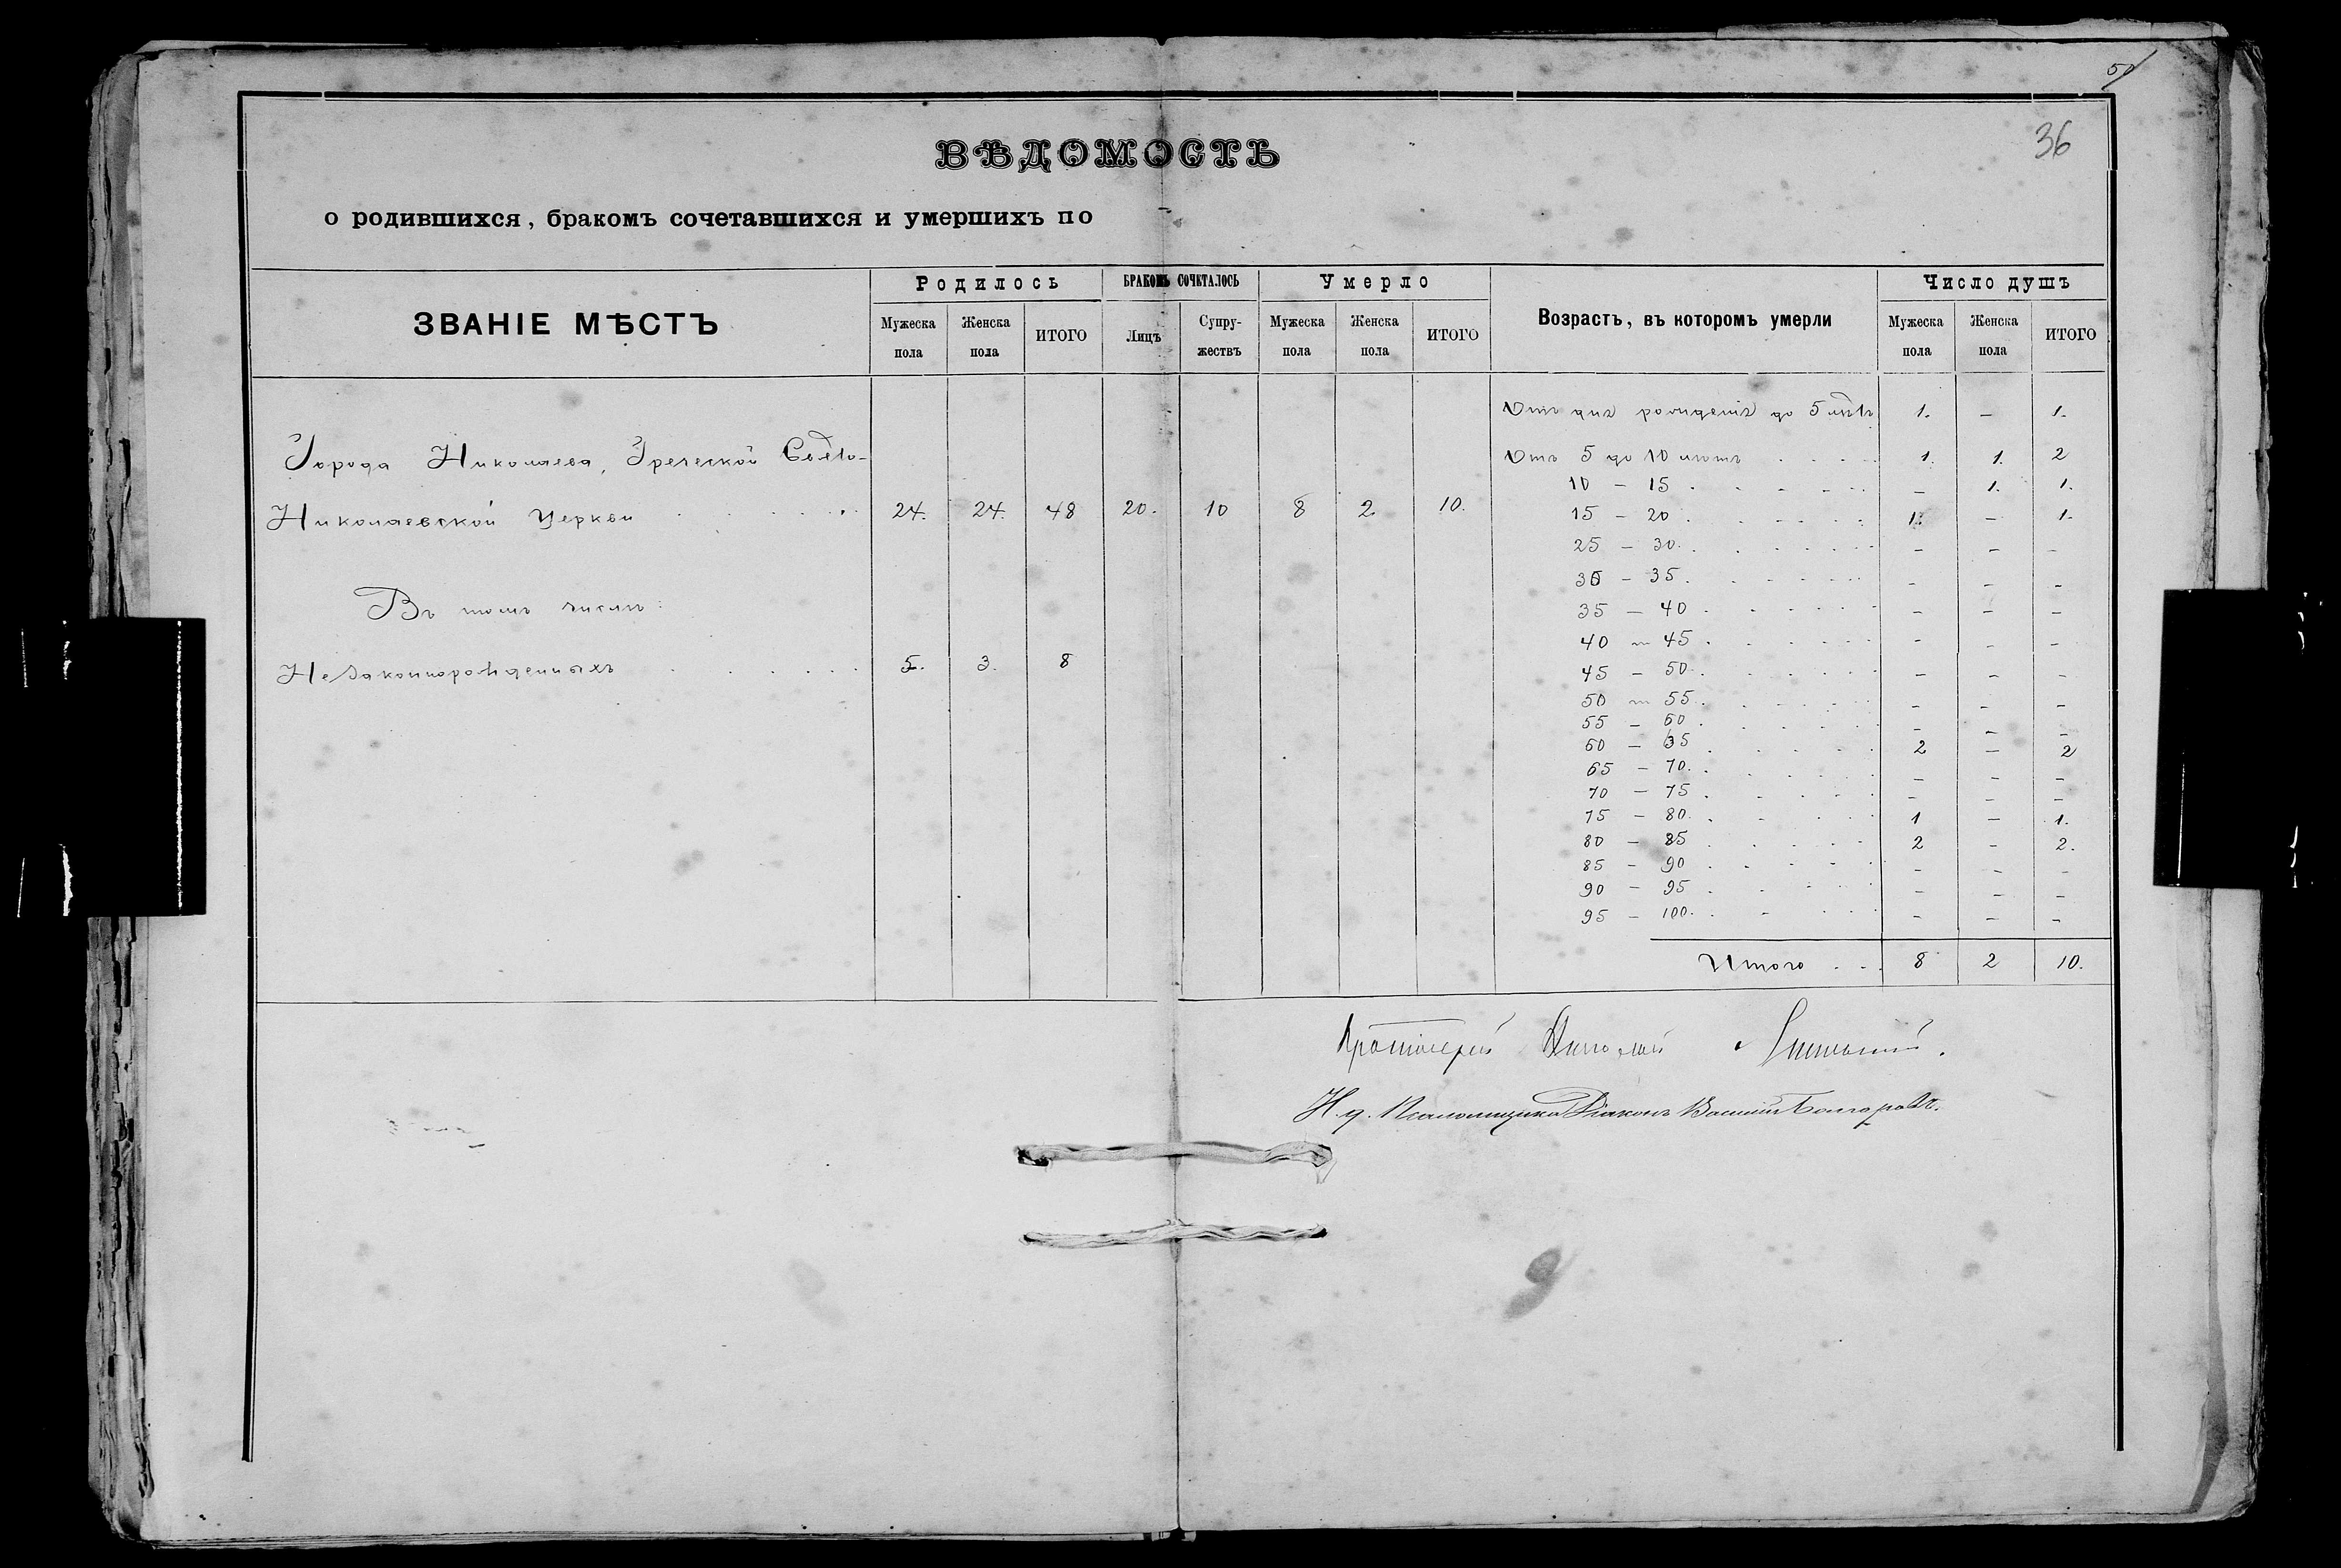 50
36
ВѢДОМОСТЬ
о родившихся, бракомъ сочетавшихся и умершихъ по
ЗВАНІЕ МѢСТЪ
Родилось
БРАКОМЪ СОЧЕТАЛОСЬ
Умерло
Возрастъ, въ которомъ умерли
Число душъ
Мужеска пола
Женска пола
ИТОГО
Лицъ
Супружествъ
Мужеска пола
Женска пола
ИТОГО
Мужеска пола
Женска пола
ИТОГО
Города Николаева, Греческой Свято-
Николаевской Церкви 24. 24. 48 20. 10 8 2 10.
Въ томъ числѣ:
Незаконнорожденныхъ 5. 3. 8
Отъ дня рожденія до 5 лѣтъ 1. – 1.
Отъ 5 до 10 лѣтъ 1. 1. 2
10 – 15 – 1. 1.
15 – 20 1. – 1.
25 – 30 – – –
30 – 35 – – –
35 – 40 – – –
40 – 45 – – –
45 – 50 – – –
50 – 55 – – –
55 – 60 – – –
60 – 65 2 – 2
65 – 70 – – –
70 – 75 – – –
75 – 80 1 – 1.
80 – 85 2 – 2.
85 – 90 – – –
90 – 95 – – –
95 – 100 – – –
Итого 8 2 10.
Протоіерей Николай
И. д. Псаломщика Діаконъ Василій